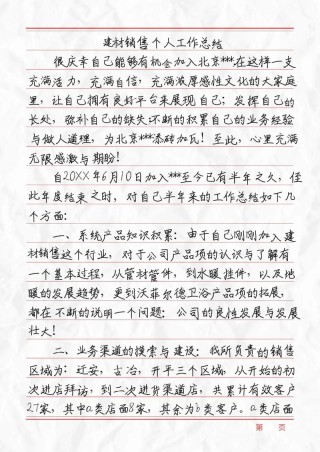 建材销售个人工作总结
很庆幸自己能够有机会加入北京***在这样一支
充满活力，充满自信，充满浓厚感性文化的大家庭
里，让自己拥有良好平台来展现自己；发挥自己的
长处，弥补自己的缺失不断的积累自己的业务经验
与做人道理，为北京***添砖加瓦！至此，心里充满
无限感激与期盼！
自20XX年6月10日加入***至今已有半年之久，值
此年度结束之时，对自己半年来的工作总结如下几
个方面：
一、系统产品知识积累：由于自己刚刚加入建
材销售这个行业，对于公司产品项的认识与了解有
一个基本过程，从管材管件，到水暖挂件，以及地
暖的发展趋势，更到沃菲尔德卫浴产品项的拓展，
都在不断的说明一个问题：公司的良性发展与发展
壮大！
二、业务渠道的摸索与建设：我所负责的销售
区域为：迁安，古冶，开平三个区域，从开始的初
次进店拜访，到二次进货渠道店，共累计有效客户
27家，其中a类店面8家，其余为b类客户。a类店面
第 页